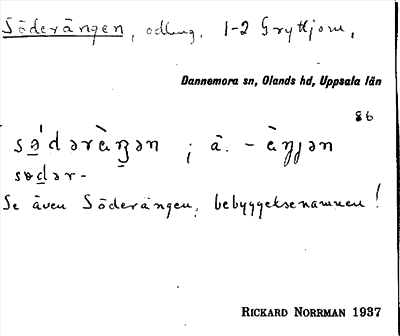 Söderängen, odling, 1-2 Gryttjom,
Dannemora sn, Olands hd, Uppsala län
86
sə̀dəràŋən ; ä. - àŋjən
sɵdər-
Se även Söderängen, bebyggelsenamnen!
RICKARD NORRMAN 1937